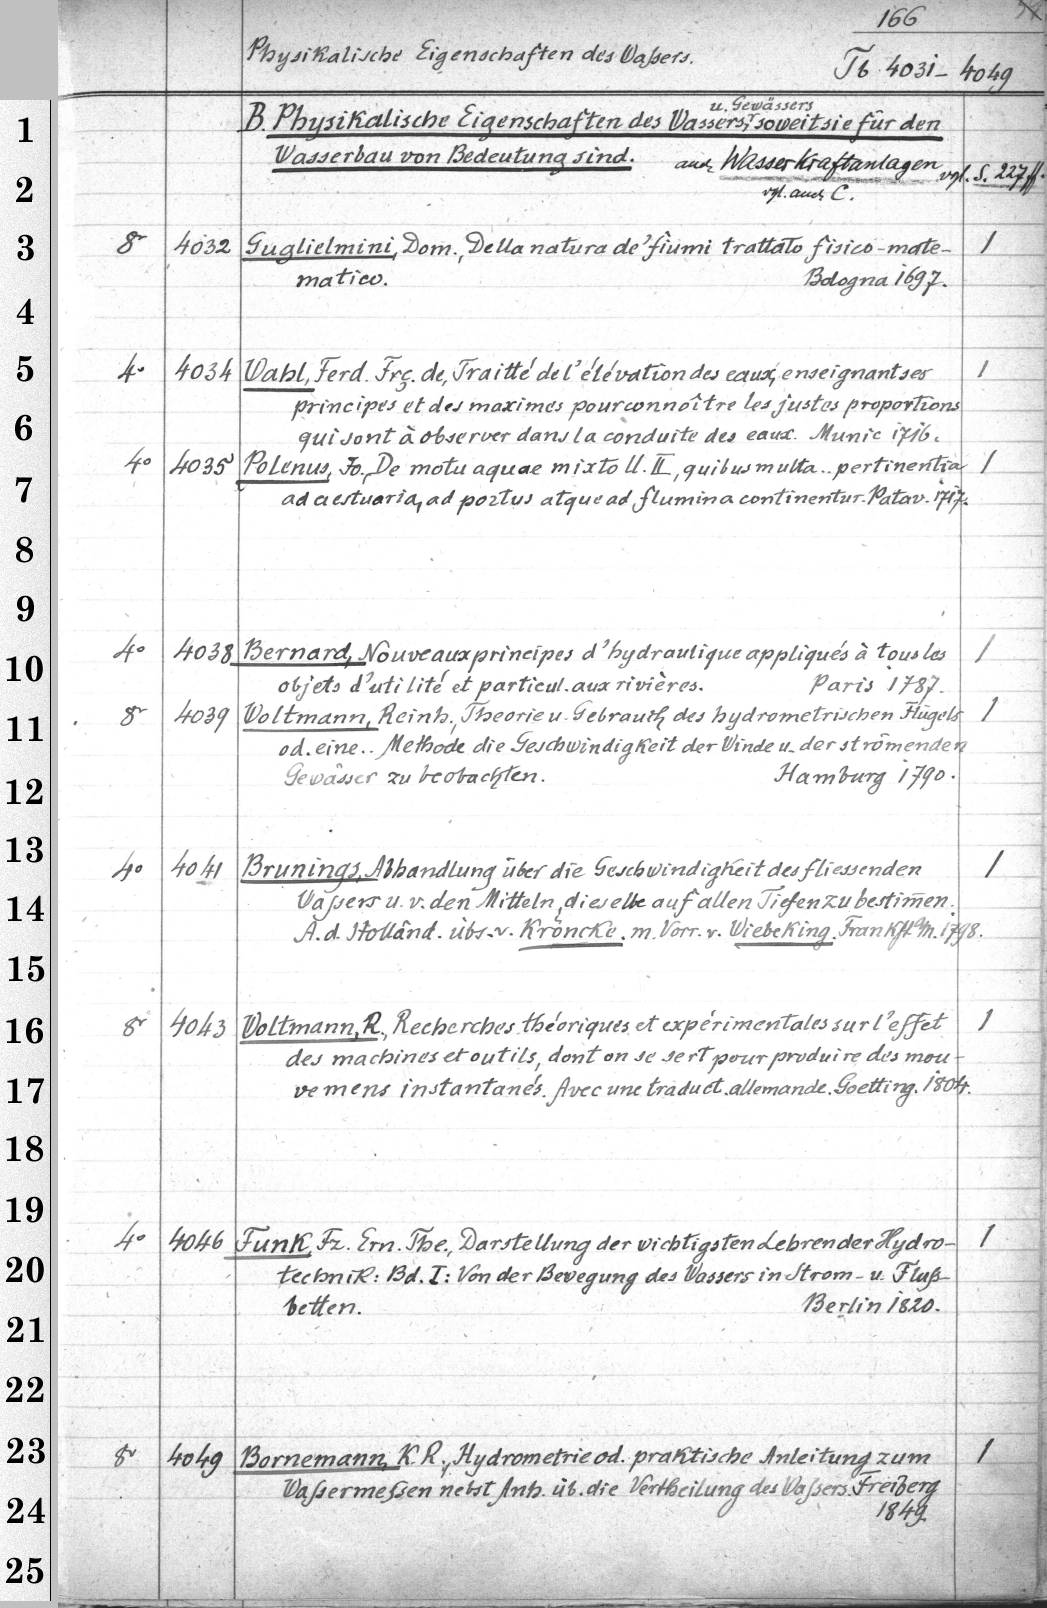 166
Physikalische Eigenschaften des Waßers.
Tb 4031-4049
1
u. Gewässers
B. Physikalische Eigenschaften des Wassers, soweit sie für den
Wasserbau von Bedeutung sind. auch Wasserkraftanlagen vgl. S. 227 ff.
2
vgl. auch C.
3
8° 4032 Guglielmini, Dom., Della natura de' fiumi trattato fisico-mate- 1
matico. Bologna 1697.
4
5
4° 4034 Wahl, Ferd. Frç. de, Traitté de l'élévation des eaux, enseignant ses 1
principes et des maximes pour connoître les justes proportions
6
qui sont à observer dans la conduite des eaux. Munic 1716.
4° 4035 Polenus, Jo., De motu aquae mixto ll. II, quibus multa .. pertinentia 1
7
ad aestuaria, ad portus atque ad flumina continentur. Patav. 1717.
8
9
4° 4038 Bernard, Nouveaux principes d'hydraulique appliqués à tous les 1
10
objets d'utilité et particul. aux rivières. Paris 1787.
8° 4039 Woltmann, Reinh., Theorie u. Gebrauch des hydrometrischen Flügels 1
11
od. eine .. Methode die Geschwindigkeit der Winde u. der strömenden
Gewässer zu beobachten. Hamburg 1790.
12
13
4° 4041 Brunings, Abhandlung über die Geschwindigkeit des fliessenden 1
14
Waßers u. v. den Mitteln, dieselbe auf allen Tiefen zu bestim̄en.
A. d. Holländ. übs. v. Kröncke. m. Vorr. v. Wiebeking. Frankft a/M. 1798.
15
16
8° 4043 Woltmann, R., Recherches théoriques et expérimentales sur l'effet 1
des machines et outils, dont on se sert pour produire des mou-
17
vemens instantanés. Avec une traduct. allemande. Goetting. 1804.
18
19
4° 4046 Funk, Fz. Ern. The., Darstellung der wichtigsten Lehren der Hydro- 1
20
technik: Bd. I: Von der Bewegung des Wassers in Strom- u. Fluß-
betten. Berlin 1820.
21
22
23
8° 4049 Bornemann, K. R., Hydrometrie od. praktische Anleitung zum 1
Waßermeßen nebst Anh. üb. die Vertheilung des Waßers. Freiberg
24
1849.
25